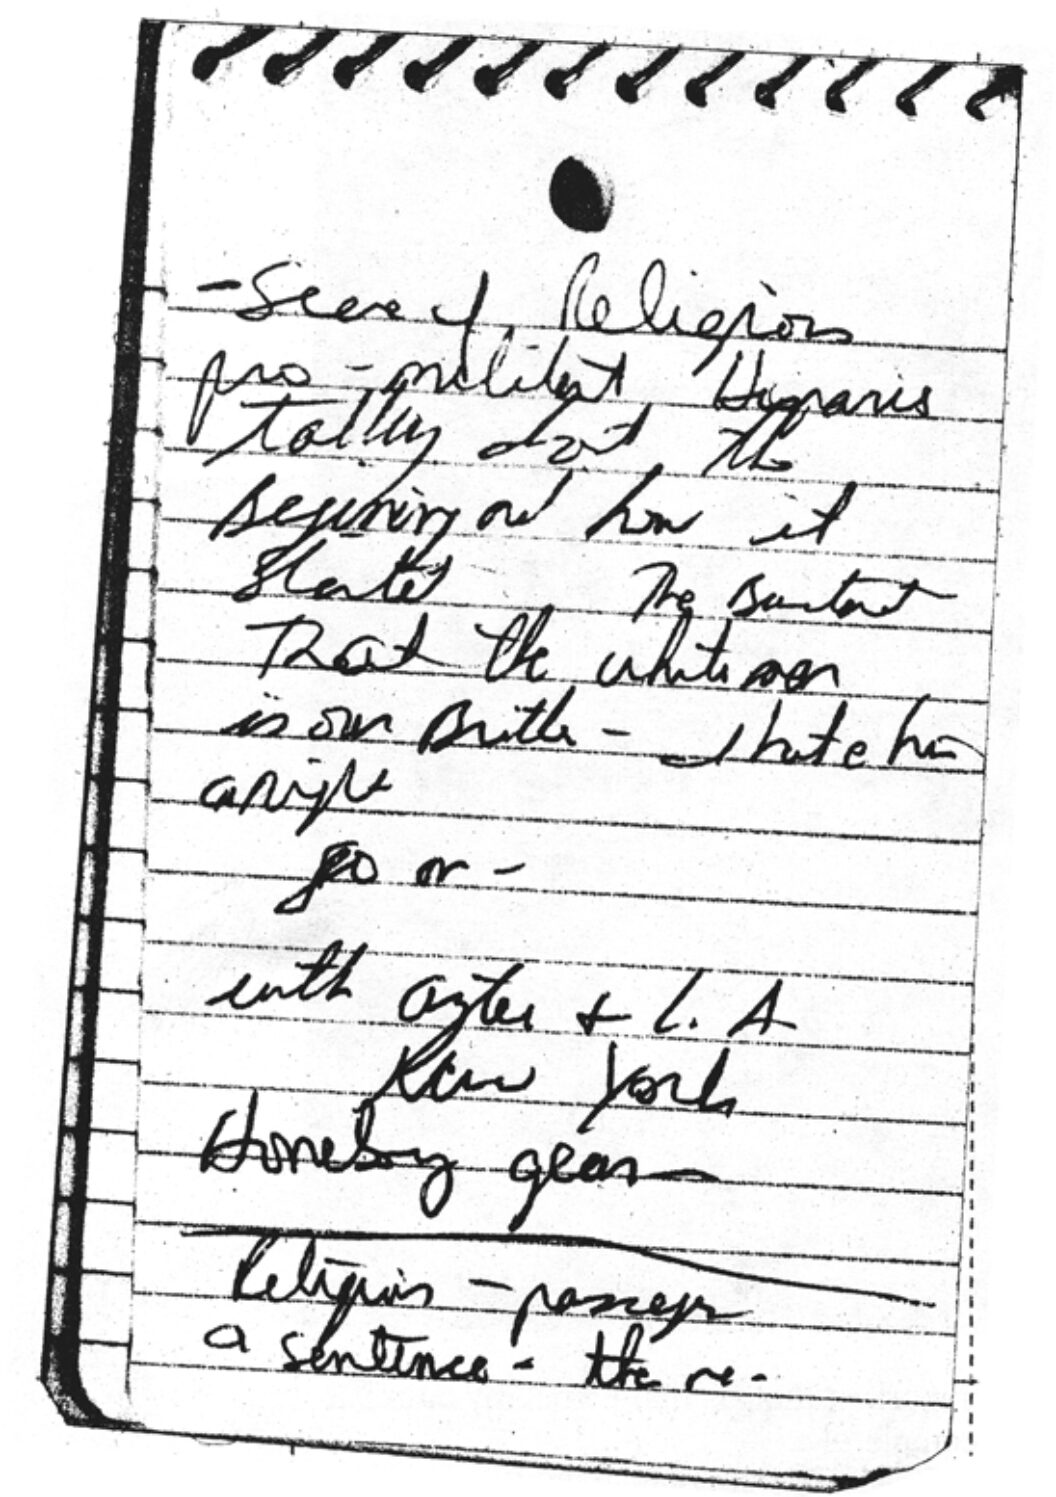 - Scene of Religious
pro-militant Hispanis
talking about the
Beginning and how it
started The
That the white man
is our Brother - I hate him
alright
go on -
with aztec + L.A
New York
gear
Religious - passages
a sentence - the re-